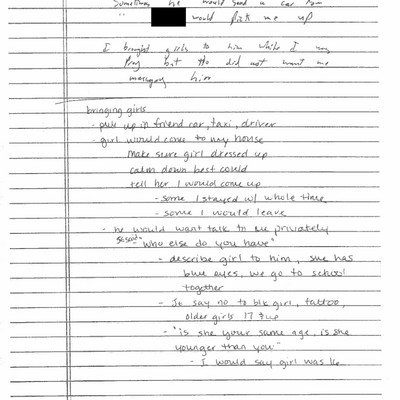 Sometimes he would send a car
" would pick me up
I brought girls to him while I was
Preg but He did not want me
massaging him
bringing girls
- pull up in friend car, taxi, driver
- girl would come to my house
make sure girl dressed up
calm down best could
tell her I would come up
- some I stayed w/ whole time
- some I would leave
- he would want talk to me privately
"who else do you have"
- describe girl to him, she has
blue eyes, we go to school
together
- JE say no to blk girl, tattoo,
older girls 17 & up
- "is she your same age, is she
younger than you"
- I would say girl was 16